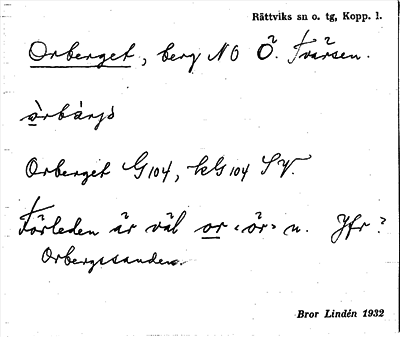 Rättviks sn o. tg, Kopp. l.
Orberget, berg NO Ö. Tvärsen.
òrbárjɔ
Orberget G104, kG104 SV.
Förleden är väl or ‹ör› n. Jfr ?
Orbergssanden.
Bror Lindén 1932